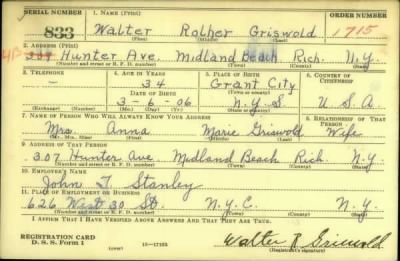 SERIAL NUMBER 1. NAME (Print) ORDER NUMBER
833 Walter Rolher Griswold 1715
(First) (Middle) (Last)
2. ADDRESS (Print)
Hunter Ave. Midland Beach Rich. N.Y.
(Number and street or R. F. D. number) (Town) (County) (State)
3. TELEPHONE 4. AGE IN YEARS 5. PLACE OF BIRTH 6. COUNTRY OF CITIZENSHIP
34 Grant City
DATE OF BIRTH (Town or county)
3-6-06 N.Y.S. U.S.A.
(Exchange) (Number) (Mo.) (Day) (Yr.) (State or country)
7. NAME OF PERSON WHO WILL ALWAYS KNOW YOUR ADDRESS 8. RELATIONSHIP OF THAT PERSON
Mrs. Anna Marie Griswold Wife
(Mr., Mrs., Miss) (First) (Middle) (Last)
9. ADDRESS OF THAT PERSON
307 Hunter Ave Midland Beach Rich. N.Y.
(Number and street or R. F. D. number) (Town) (County) (State)
10. EMPLOYER'S NAME
John T. Stanley
11. PLACE OF EMPLOYMENT OR BUSINESS
626 West 30 St. N.Y.C. N.Y.
(Number and street or R. F. D. number) (Town) (County) (State)
I AFFIRM THAT I HAVE VERIFIED ABOVE ANSWERS AND THAT THEY ARE TRUE.
REGISTRATION CARD
D. S. S. Form 1 (over) 16-17105 Walter R Griswold
(Registrant's signature)